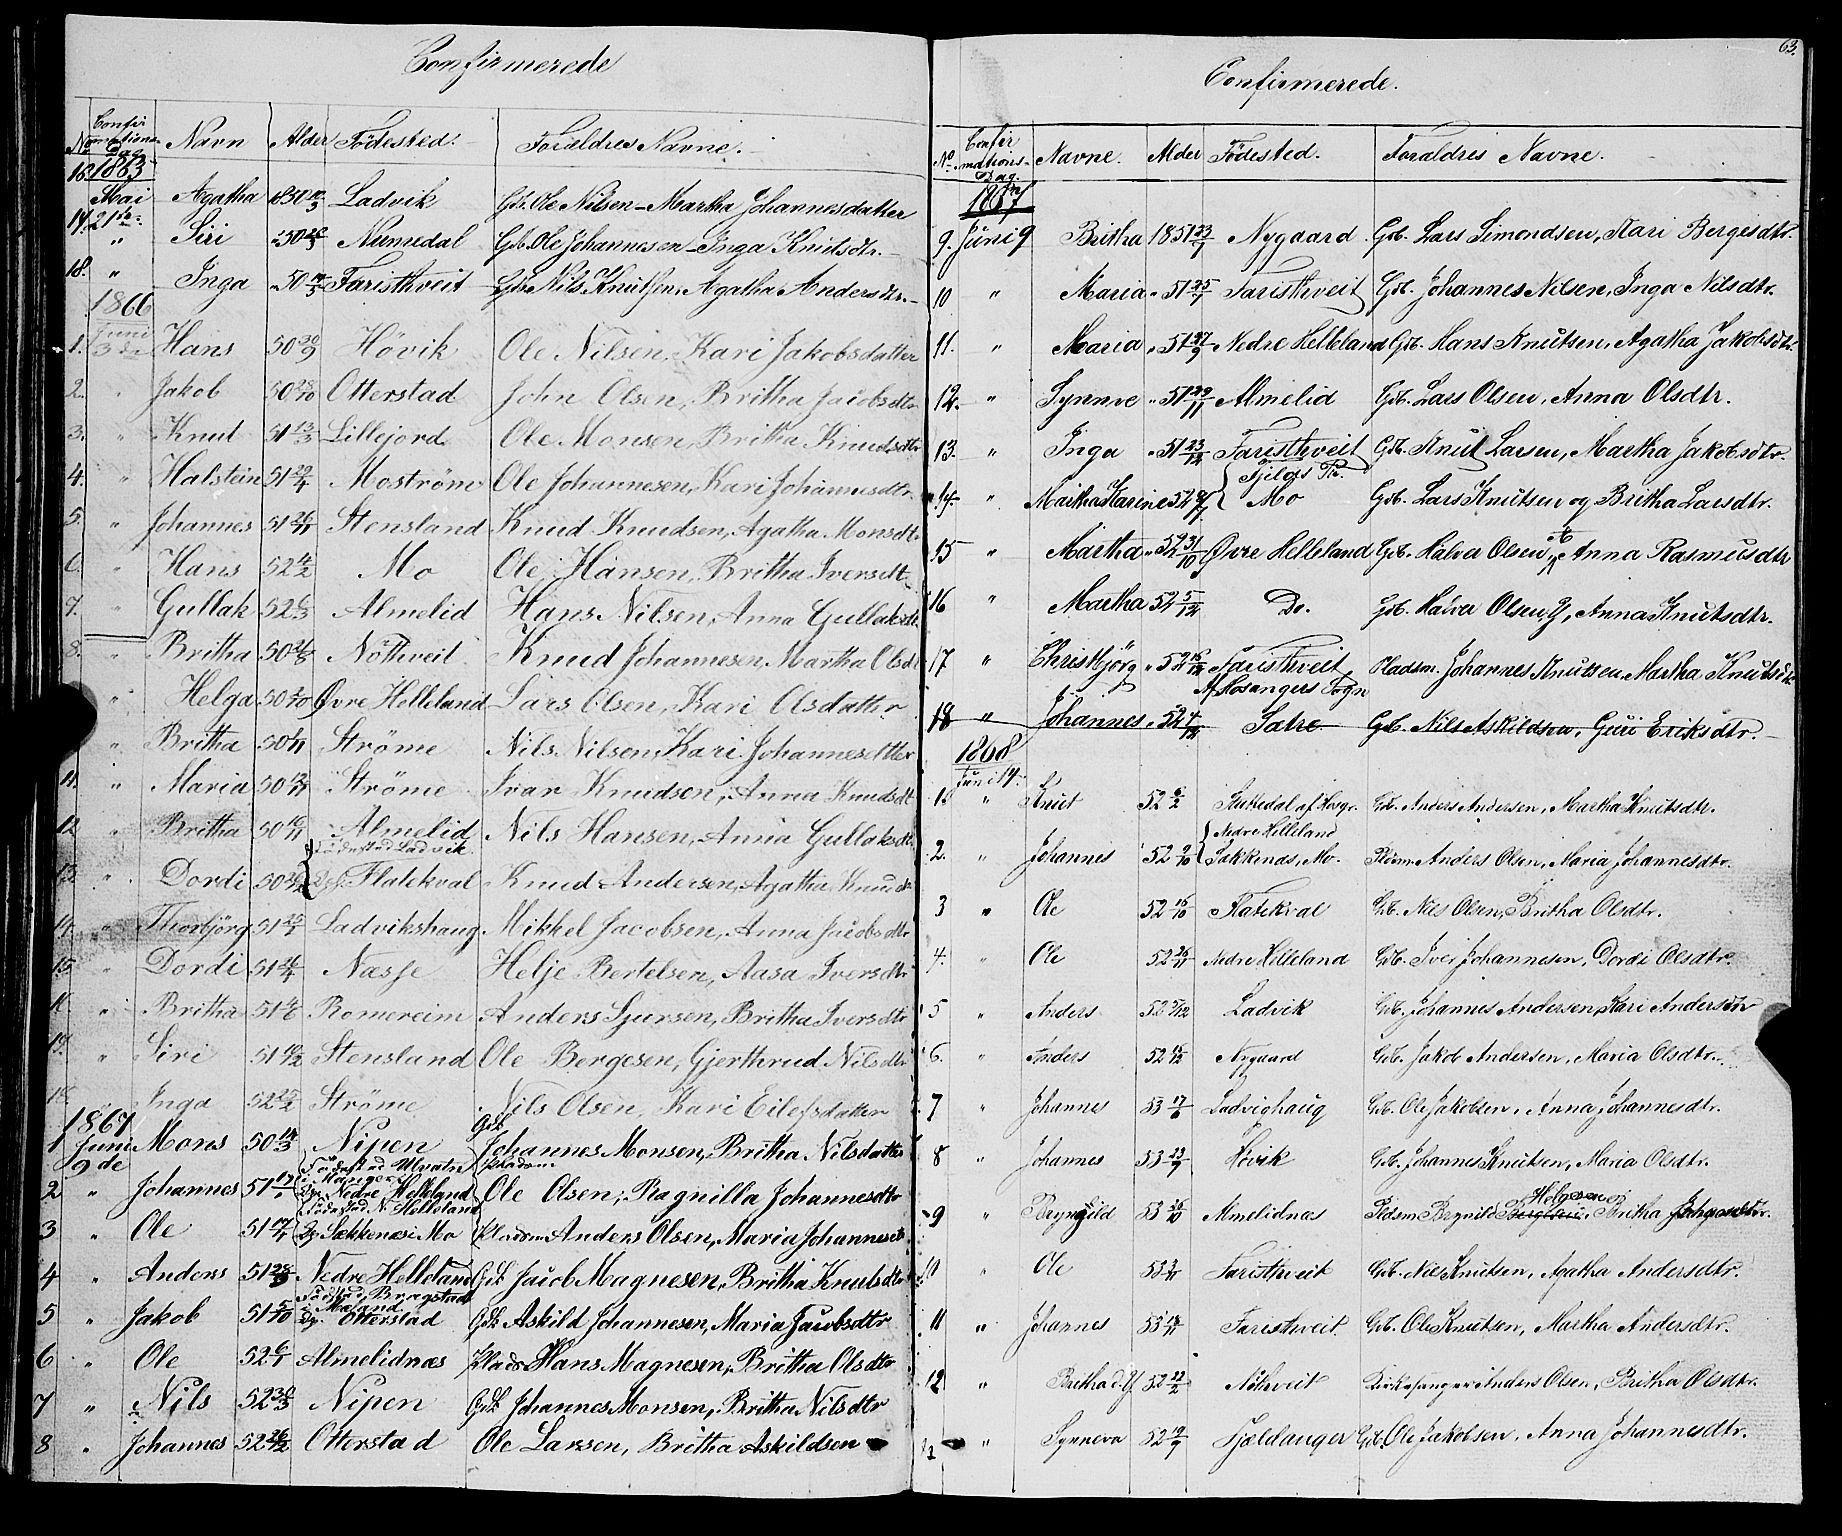 Confirmerede
No Confirmations Dag Navn Alder Födested. Forældres Navne.
16. 1863
Mai Agatha Ladvik Gb. Ole Nilsen - Martha Johannesdatter
17. 21de Siri Numedal Gb. Ole Johannesen - Inga Knutsdtr.
18. " Inga Faristhveit Gb. Nils Knutsen, Agatha Andersdtr.
1866
Juni
1. 3de Hans 50 30/9 Hövik Ole Nilsen, Kari Jakobsdatter
2. " Jakob 50 28/10 Otterstad John Olsen, Britha Jacobsdtr
3. " Knut 51 13/3 Lillejord Ole Monsen, Britha Knudsdtr
4. " Halstein 51 29/4 Moström Ole Johannesen, Kari Johannesdtr
5. " Johannes 51 26/11 Stensland Knud Knudsen, Agatha Monsdt
6. " Hans 52 4/2 Mo Ole Hansen, Britha Iversdt
7. " Gullak 52 6/3 Almelid Hans Nilsen, Anna Gullaksdt
8. " Britha 50 Nöthveit Knud Johannesen, Martha Olsdt
" Helga 50 Øvre Helleland Lars Olsen, Kari Olsdatter
" Britha 50 Ströme Nils Nilsen, Kari Johannesdtter
11. " Maria 50 Ströme Ivar Knudsen, Anna Knudsdt
12 " Britha 50 Almelid Nils Hansen, Anna Gullaksdt
Födestad Ladvik
13 " Dordi 50 Flatekval Knud Andersen, Agatha Knuds
14. " Thorbjörg 51 Ladvikshaug Mikkel Jacobsen, Anna Jacobsdtr
15 " Dordi 51 Nasse Helje Bertelsen, Aasa Iversdtr
16 " Britha 51 Romereim Anders Sjursen, Britha Iversdtr
17. " Siri 51 Stensland Ole Bergesen, Gjerthrud Nilsdtr
18 " Inga 52 Ströme Nils Olsen, Kari Eilefsdatter
1867
1 Juni Mons 50 14/3 Nipen Gdb. Johannes Monsen, Britha Nilsdatter
9de
2 " Johannes 51 Födestad i Manger Nedre Helleland Pladsm Ole Olsen, Ragnilla Johannesdtr
3 " Ole 51 Födestad N. Helleland Sækkenæs i Mo Pladsm Anders Olsen, Maria Johannesdt
4 " Anders 51 28/9 Nedre Helleland Gdb Jacob Magnesen, Britha Knutsdtr
5 " Jakob 51 5/10 Födestad Bragstad i Maland Otterstad Gdb Askild Johannesen, Maria Jacobsdtr
6 " Ole 52 6/1 Almelidnæs Plads Hans Magnesen, Britha Olsdtr
7 " Nils 52 30/3 Nipen Gdb Johannes Monsen, Britha Nilsdtr
8 " Johannes 52 Otterstad Ole Larsen, Britha Askildsen
63.
Confirmerede.
No. Confirmations-Dag. Navne. Alder Födested. Forældres Navne.
1867
9. Juni 9 Britha 1851 23/7 Nygaard Gb. Lars Simondsen, Kari Bergesdtr.
10 " Maria " 51 25/7 Faristhveit Gb. Johannes Nilsen, Inga Nilsdtr.
11. " Maria " 51 27/9 Nedre Helleland Gb. Hans Knutsen, Agatha Jakobsdtr.
12. " Synnve " 51 29/11 Almelid Gb. Lars Olsen, Anna Olsdtr.
13. " Inga " 51 23/12 Faristhveit Gb. Knut Larsen, Martha Jakobsdtr.
Fjelds Pr.
14. " Martha Karine 52 Mo Gb. Lars Knutsen og Britha Larsdtr.
15 " Martha " 52 31/10 Øvre Helleland Gb. Halvor Olsen, Anna Rasmusdtr
16 " Martha 52 5/12 Do. Gb. Halver Olsen Y, Anna Knutsdtr.
17 " Christbjörg " 52 Faristhveit Pladsm. Johannes Knutsen, Martha Knutsdtr
Af Hosangers Sogn
18 " Johannes " 52 Sætre Gb. Nils Askildsen, Guri Eriksdtr.
1868
Juni 14
1. " Knut 52 6/2 Stukedal af Hosgr. Gb. Anders Andersen, Martha Knutsdtr.
2. " Johannes 52 9/10 Nedre Helleland Sækkenæs, Mo. Pladsm Anders Olsen, Maria Johannesdtr.
3 " Ole 52 16/10 Flatekval Gb. Nils Olsen, Britha Olsdtr.
4. " Ole 52 26/11 Nedre Helleland Gb. Iver Johannesen, Dordi Olsdtr.
5 " Anders 52 Ladvik Gb. Johannes Andersen, Kari Andersdtr
6. " Anders 52 Nygaard Gb. Jakob Andersen, Maria Olsdtr.
7 " Johannes 53 17/6 Ladvighaug Gb. Ole Jakobsen, Anna Johannesdtr.
8 " Johannes 53 23/9 Hövik Gb. Johannes Knutsen, Maria Olsdtr.
9 " Brynjild 53 Almelidnæs Pladsm Brynild Helgesen, Britha
10 " Ole 53 Faristhveit Gb. Nils Knutsen, Agatha Andersdtr.
11 " Johannes 53 Faristhveit Gb. Ole Knutsen, Martha Andersdtr.
12 " Britha d. Y. 52 Nöthveit Kirkesanger Anders Olsen, Britha Olsdtr.
" Synneva 52 Fjældanger Gb. Ole Jakobsen, Anna Johannesdtr.